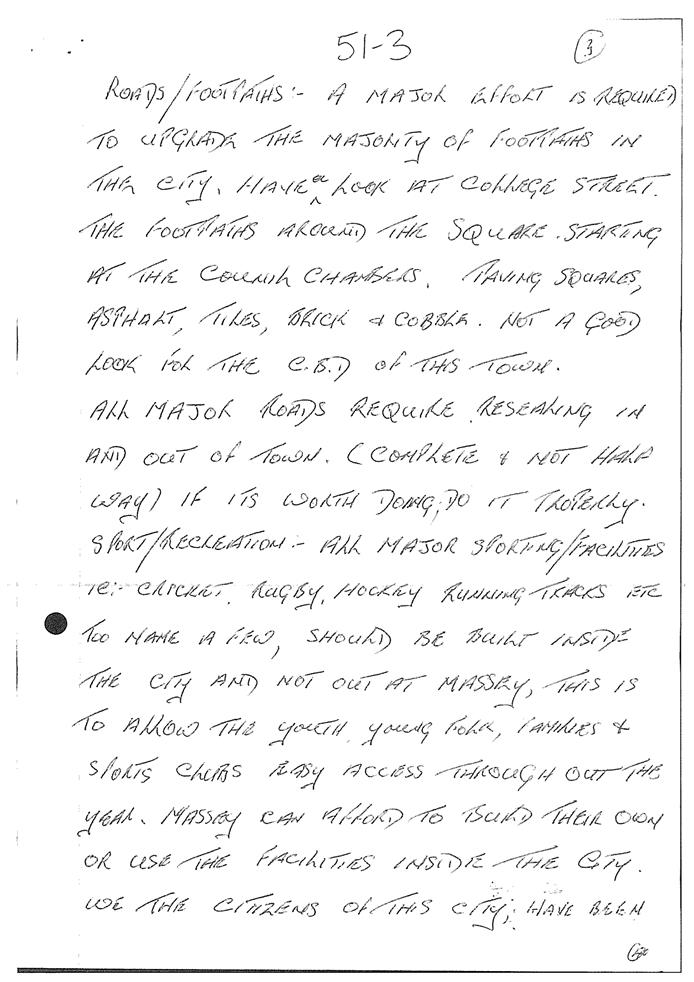 51-3
3
ROADS/FOOTPATHS:- A MAJOR EFFORT IS REQUIRED
TO UPGRADE THE MAJORITY OF FOOTPATHS IN
THE CITY. HAVE a LOOK AT COLLEGE STREET.
THE FOOTPATHS AROUND THE SQUARE. STARTING
AT THE COUNCIL CHAMBERS. PAVING SQUARES,
ASPHALT, TILES, BRICK & COBBLE. NOT A GOOD
LOOK FOR THE C.B.D OF THIS TOWN.
ALL MAJOR ROADS REQUIRE RESEALING IN
AND OUT OF TOWN. (COMPLETE & NOT HALF
WAY) IF ITS WORTH DOING, DO IT PROPERLY.
SPORT/RECREATION:- ALL MAJOR SPORTING/FACILITIES
IE:- CRICKET, RUGBY, HOCKEY RUNNING TRACKS ETC
TOO NAME A FEW, SHOULD BE BUILT INSIDE
THE CITY AND NOT OUT AT MASSEY, THIS IS
TO ALLOW THE YOUTH, YOUNG FOLK, FAMILIES &
SPORTS CLUBS EASY ACCESS THROUGH OUT THE
YEAR. MASSEY CAN AFFORD TO BUILD THEIR OWN
OR USE THE FACILITIES INSIDE THE CITY.
WE THE CITIZENS OF THIS CITY, HAVE BEEN